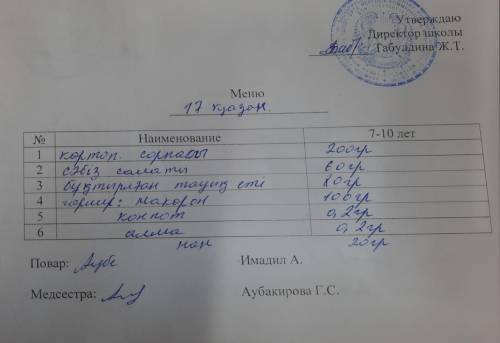 Утверждаю
Директор школы
Табуадина Ж.Т.
Меню
17 қазан.
№ Наименование 7-10 лет
1 картоп. сорпасы 200гр
2 сәбіз салаты 60гр
3 бұқтырлған тауық еті 80гр
4 гарнир: макорон 100гр
5 конпот 0,2гр
6 алма 0,2гр
нан 20гр
Повар: Имадил А.
Медсестра: Аубакирова Г.С.